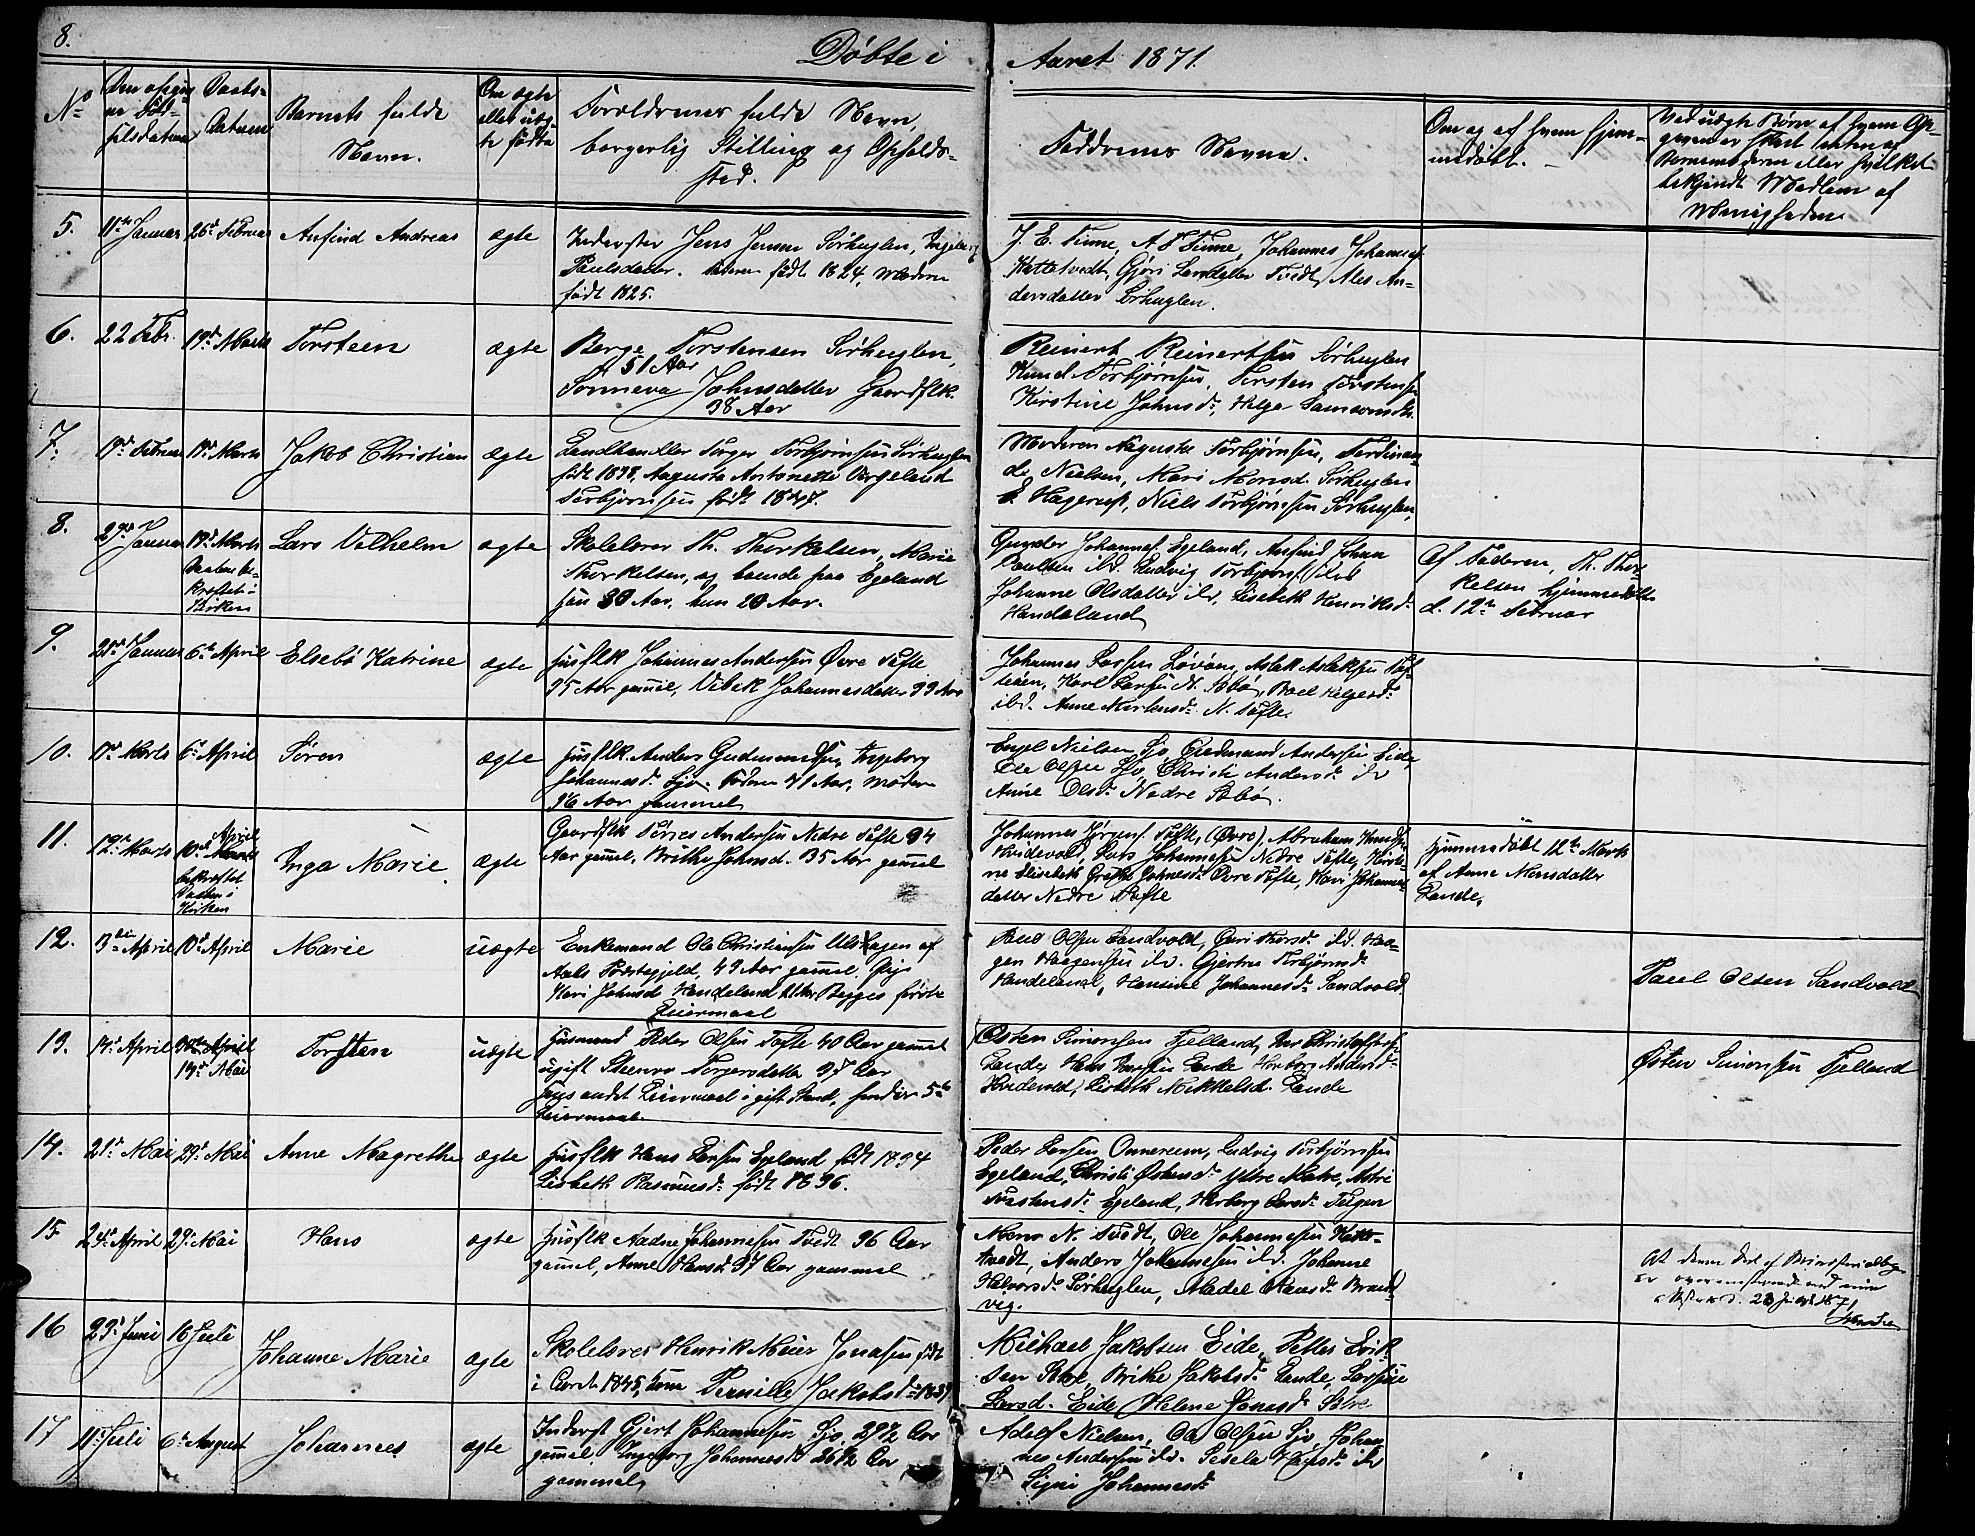 8.
Døbte i Aaret 1871.
No
Daabs-
Datum
Barnets fulde
Navn.
Om ægte
eller uæg-
te fødte
Forældrenes fulde Navn,
borgerlig Stilling og Opholds-
sted.
Faddrenes Navne.
Om og af hvem hjem-
medøbt.
Ved uægte Børn af hvem Op-
Menigheden
5.
11te Januar
26d Februar
Anfind Andreas
ægte
Inderster Jens Jensen Sørhuglen, Ingeborg
Paulsdatter. Faderen født 1824, Moderen
født 1825.
J. E. Time, A T Time, Johannes Johannes
Kattetvedt, Gjøri Larsdatter Tvedt, Ales An-
dersdatter Sørhuglen.
6.
22 Febr.
19d Marts
Torsteen
ægte
Berge Torstensen Sørhuglen,
51 Aar
Sonneva Johnsdatter Gaardflk.
38 Aar
Reinert Reinertsen Sørhuglen
Knud Torbjørnsen, Torsten Torstens.
Kirstine Johnsd., Helge Samsonsd.
7.
19d Marts
Jakob Christian
ægte
Landhandler Torger Torbjørnsen Sørhuglen
født 1838, Augusta Antonette Bergeland
Torbjørnsen født 1847.
Moderen Auguste Torbjørnsen, Ferdinan-
da Nielsen, Mari Monsd. Sørhuglen
E. Hagerup, Niels Torbjørnsen Sørhuglen,
8.
29d Januar
19d Marts
Daaben be-
kræftet i
Kirken
Lars Vilhelm
ægte
Skolelærer Th. Thorkelsen, Marie
Thorkelsen, og boende paa Egeland
han 30 Aar, hun 20 Aar.
Gunder Johannes. Egeland, Anfind Johan
Paulsen ibd. Ludvig Torbjørns. ibd
Johanne Olsdatter ibd, Lisebeth Henriksd.
Handeland
Af Faderen, Th. Thor-
kelsen hjemmedøbt
d. 12te Februar
9.
28d Januar
6te April
Elsebø Katrine
ægte
Husflk Johannes Andersen Øvre Tofte
35 Aar gamel, Vibek Johannesdatter 33 Aar
Johannes Larsen Løvøen, Aslak Aslaksen Tof-
teøen, Karl Larsen N. Stbø, Boel Helgesd.
ibd. Anne Mortensd. N. Tofte.
10.
17d Marts
6te April
Søren
ægte
Husflk Anders Gudmundsen, Ingeborg
Johannesd. Sjo. Faderen 41 Aar, Moderen
36 Aar gammel
Engel Nielsen Sjo, Gudmund Andersen Eide,
Ole Olsen Sjo, Christi Andersd. ibd
Anne Olsd. Nedre Stbø.
11.
12te Marts
April
10d Marts
bekræftet
Daaben i
Kirken
Inga Marie
ægte
Gaardflk Tønnes Andersen Nedre Tofte 34
Aar gamel, Brithe Johnsd. 35 Aar gamel
Johannes Jørgens. Tofte, (Øvre), Abraham Knudsen
Hvidevold, Lars Johannesen Nedre Tofte, Kirsti-
ne Elisebeth Grethe Johnesd. Øvre Tofte, Kari Johannes-
datter Nedre Tofte
Hjemmedøbt 12te Marts
af Anne Monsdatter
Lande,
12.
3die April
10d April
Marie
uægte
Enkemand Ole Christiansen Ulshagen af
Aals Præstegjeld, 49 Aar gammel. Pige
Kari Johnsd. Handeland Begges første
Leiermaal
Paul Olsen Sandvold, Guri Thorsd. ibd. Haa-
gen Haagensen ibd. Gjertru Torbjørnsd.
Handeland, Hansine Johannesd. Sandvold.
Paul Olsen Sandvold
13.
14d April
19d Mai
Torsten
uægte
Husmand Peder Olsen Tofte 40 Aar gammel
ugift Steenvo Torgersdatter 37 Aar
Hans andet Leiermaal i gift Stand, hendes 5te
Leiermaal.
Østen Simonsen Fjelland, Per Christoffers.
Lande, Hans Larsen Lande, Herborg Andersd.
Hvidevold, Lisbeth Mikkelsd. Lande
Østen Simonsen Fjelland
14.
21d Mai
29d Mai
Anne Magrethe
ægte
Husflk Hans Larsen Egeland født 1834
Lisbeth Rasmusd. født 1836.
Peder Larsen Onnereim, Ludvig Torbjørnsen
Egeland, Christi Østensd. Ytre Matre, Astri
Torstensd. Egeland, Herborg Larsd. Teigen
15
24d April
29d Mai
Hans
ægte
Husflk Aadne Johannesen Tvedt 36 Aar
gamel, Anne Hansd. 37 Aar gammel
Mons N. Tvedt, Ole Johannesen Katte-
tvedt, Anders Johannesen ibd. Johanne
Halvorsd. Sørhuglen, Madel Hansd. Brand-
vig.
16
23d Juni
16 Juli
Johanne Marie
ægte
Skolelærer Henrik Meier Jonasen, født
i Aaret 1845, Pernille Jakobsd. 1837
Michael Jakobsen Eide, Petter Erik-
sen Stbø, Brithe Jakobsd. Lande,
Larsd. Eide, Helene Jonasd. Stbø
17
11te Juli
6te August
Johannes
ægte
Inderst Gjert Johannesen Sjo 29½ Aar
gamel, Ingeborg Johannesd. 26½ Aar
gammel
Adolf Nielsen, Ole Olsen Sjo, Johan-
nes Andersen ibd.
Signi Johannesd.